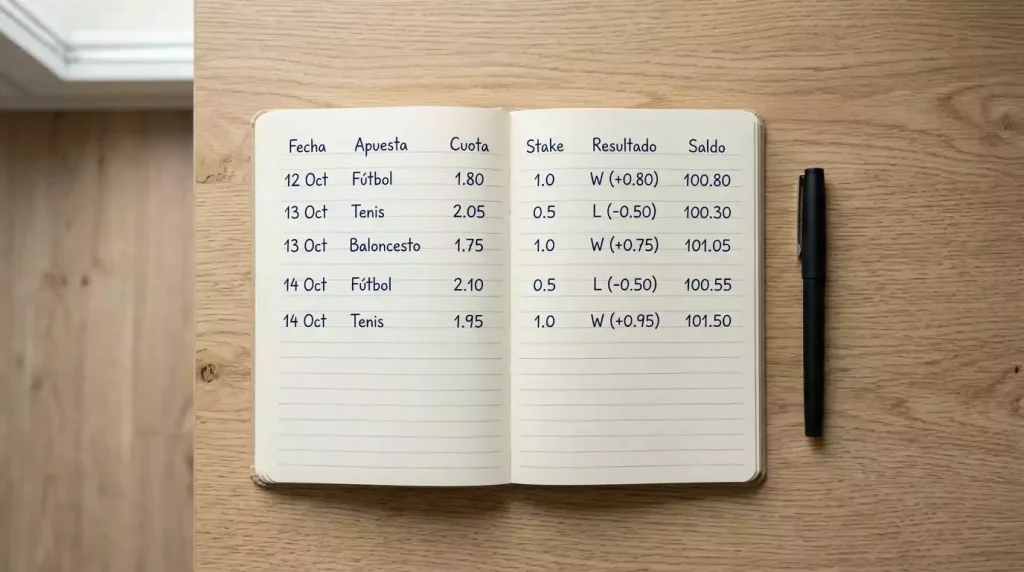 Fecha Apuesta Cuota Stake Resultado Saldo
12 Oct Fútbol 1.80 1.0 W (+0.80) 100.80
13 Oct Tenis 2.05 0.5 L (-0.50) 100.30
13 Oct Baloncesto 1.75 1.0 W (+0.75) 101.05
14 Oct Fútbol 2.10 0.5 L (-0.50) 100.55
14 Oct Tenis 1.95 1.0 W (+0.95) 101.50